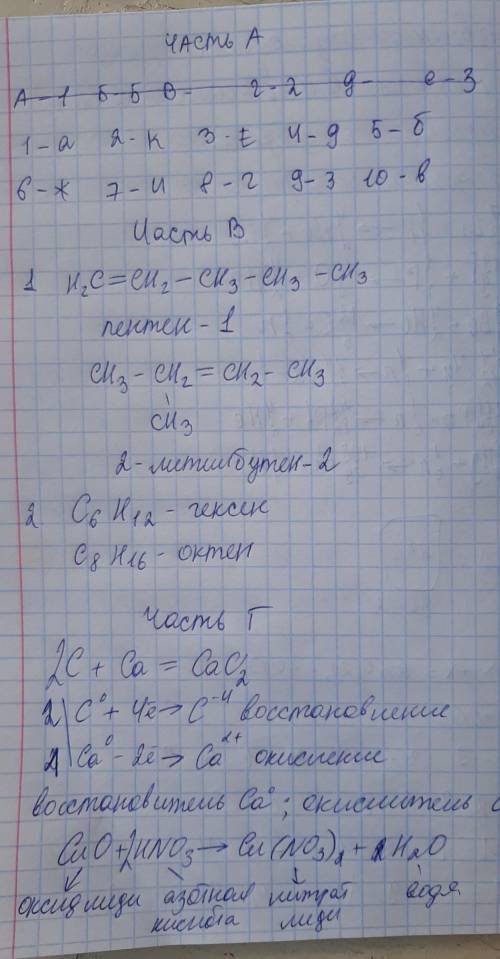 Часть А
А-1 Б-Б В- г-2 д- е-3
1-а 2-к 3-Е 4-д 5-б
6-ж 7-и 8-г 9-з 10-в
Часть В
1 H₂C=CH₂-CH₃-CH₃-CH₃
пентен-1
CH₃-CH₂=CH₂-CH₃
CH₃
2-метилбутен-2
2 C₆H₁₂-гексен
C₈H₁₆-октен
Часть Г
2C + Ca = CaC₂
2 | C⁰ + 4e → C⁻⁴ восстановление
Ca⁰ - 2e → Ca²⁺ окисление
восстановитель Ca⁰; окислитель
CuO+2HNO₃ → Cu(NO₃)₂ + H₂O
оксид меди азотная нитрат вода
кислота меди